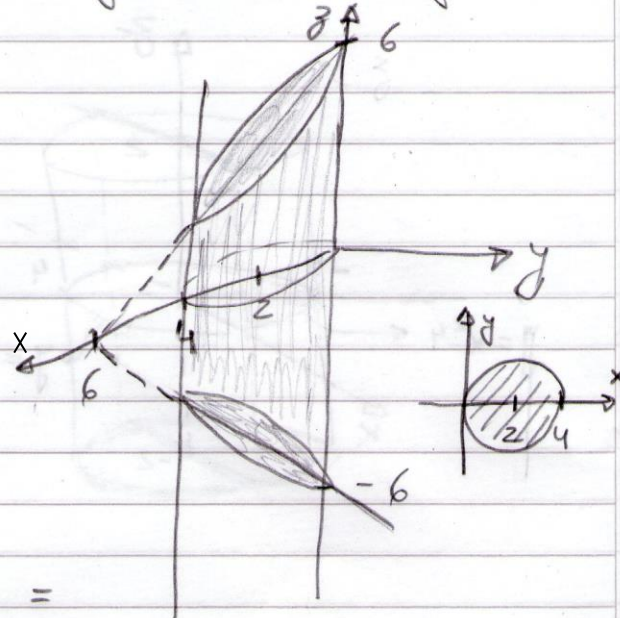 z 6
y
2
4
x
6
y
x
2 4
-6
=